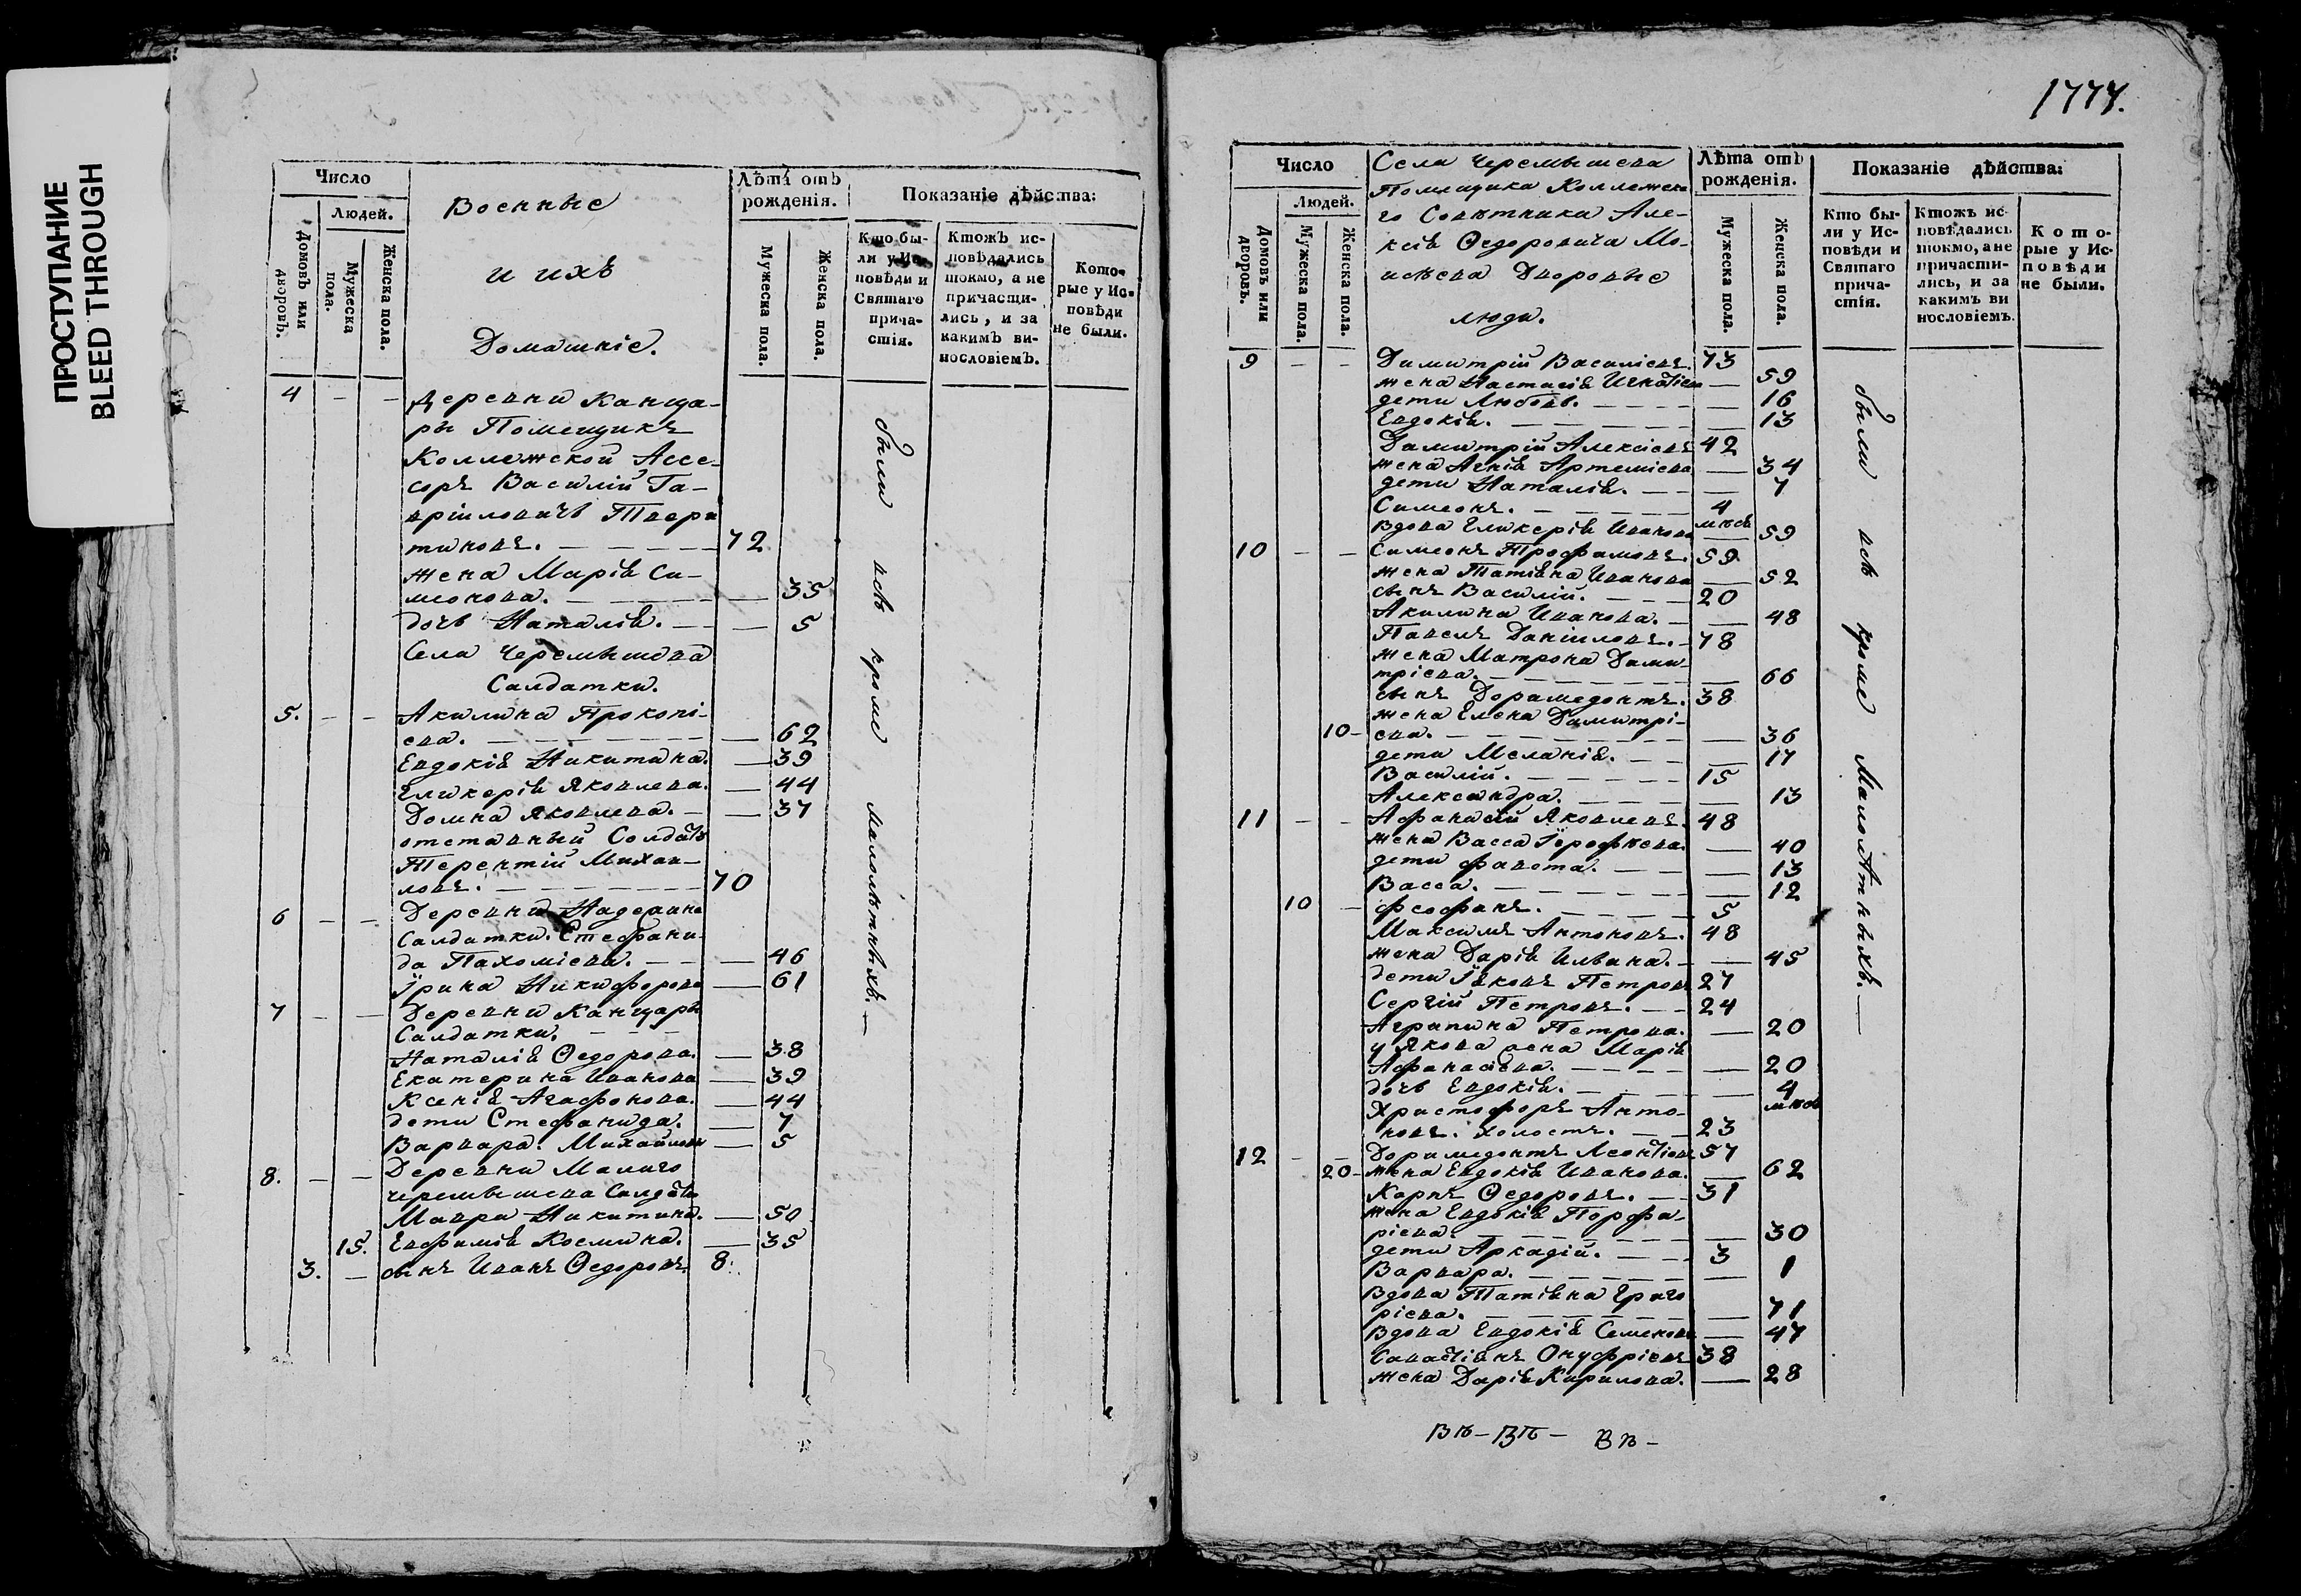 ПРОСТУПАНИЕ
BLEED THROUGH
Число
Людей.
Домовъ или дворовъ.
Мужеска пола.
Женска пола.
Военные
и ихъ
Домашніе.
Лѣта отъ рожденія.
Мужеска пола.
Женска пола.
Показаніе дѣйства:
Кто бы-
ли у Ис-
повѣди и
Святаго
прича-
стія.
Ктожъ ис-
повѣдались
токмо, а не
причасти-
лись, и за
какимъ ви-
нословіемъ.
Кото-
рые у Ис-
повѣди
не были.
4 - - Деревни Канца-
ры Помещикъ
Коллежской Ассе-
соръ Василій Га-
вріиловичъ Твери
тиновъ. 72
жена Марія Си-
меонова. 35
дочь Наталія. 5
Села Черемышева
Салдатки.
5. - - Акилина Прокопі-
ева. 62
Евдокія Никитина. 39
Гликерія Яковлева. 44
Домна Яковлева. 37
отставный Солдатъ
Терентій Михаи-
ловъ. 70
6 - - Деревни
Салдатки. Стефани-
да Пахоміева. 46
Ірина Никифорова 61
7 - - Деревни Канцаръ
Салдатки.
Наталія Ѳедорова. 38
Екатерина Иванова 39
Ксенія Агафонова. 44
дети Стефанида. 7
Варвара Михайлова 5
8. - - Деревни Малаго
Черемышева Салдатки
Мавра Никитина. 50
15. Евфимія Космина. 35
3. - сынъ Иванъ Ѳедоровъ. 8.
были всѣ кроме малолѣтныхъ.
1777.
Число
Людей.
Домовъ или дворовъ.
Мужеска пола.
Женска пола.
Села Черемышева
Помещика Коллежска
го Советника Але-
ксѣя Ѳедоровича Мо-
исѣева Дворовые
люди.
Лѣта отъ рожденія.
Мужеска пола.
Женска пола.
Показаніе дѣйства:
Кто бы-
ли у Ис-
повѣди и
Святаго
прича-
стія.
Ктожъ ис-
повѣдались
токмо, а не
причасти-
лись, и за
какимъ ви
нословіемъ.
Кото-
рые у Ис-
повѣди
не были.
9 - - Димитрій Василіевъ. 73
жена Настасія Игнатіева 59
дети Любовь. 16
Евдокія. 13
Димитрій Алексіевъ 42
жена Агнія Артеміева 34
дети Наталія. 7
Симеонъ. 4 мѣся
Вдова Гликерія Иванова 59
10 - - Симеонъ Трофимовъ. 59
жена Татіана Иванова 52
сынъ Василій. 20
Акилина Иванова. 48
Павелъ Даніиловъ. 78
жена Матрона Дими-
тріева. 66
сынъ Доримедонтъ. 38
жена Елена Димитрі-
10- ева. 36
дети Меланія. 17
Василій. 15
Александра. 13
11 - - Афанасій Яковлевъ. 48
жена Васса Іерофѣева. 40
дети Фавста. 13
Васса. 12
10 - Феофанъ. 5
Максимъ Антоновъ. 48
жена Дарія Ильина. 45
дети Іаковъ Петровъ 27
Сергій Петровъ. 24
Агрипина Петрова. 20
у Якова жена Марія
Афанасіева. 20
дочь Евдокія. 4 мѣся
Христофоръ Анто-
новъ. холостъ. 23
12 - - Доримедонтъ Леонтіевъ 57
20- жена Евдокія Иванова. 62
Карпъ Ѳедоровъ. 31
жена Евдокія Порфи-
ріева. 30
дети Аркадій. 3
Варвара. 1
Вдова Татіана Григо
ріева. 71
Вдова Евдокія Семенова 47
Савастіанъ Онуфріевъ 38
жена Дарія Кирилова. 28
были всѣ кроме малолѣтныхъ.